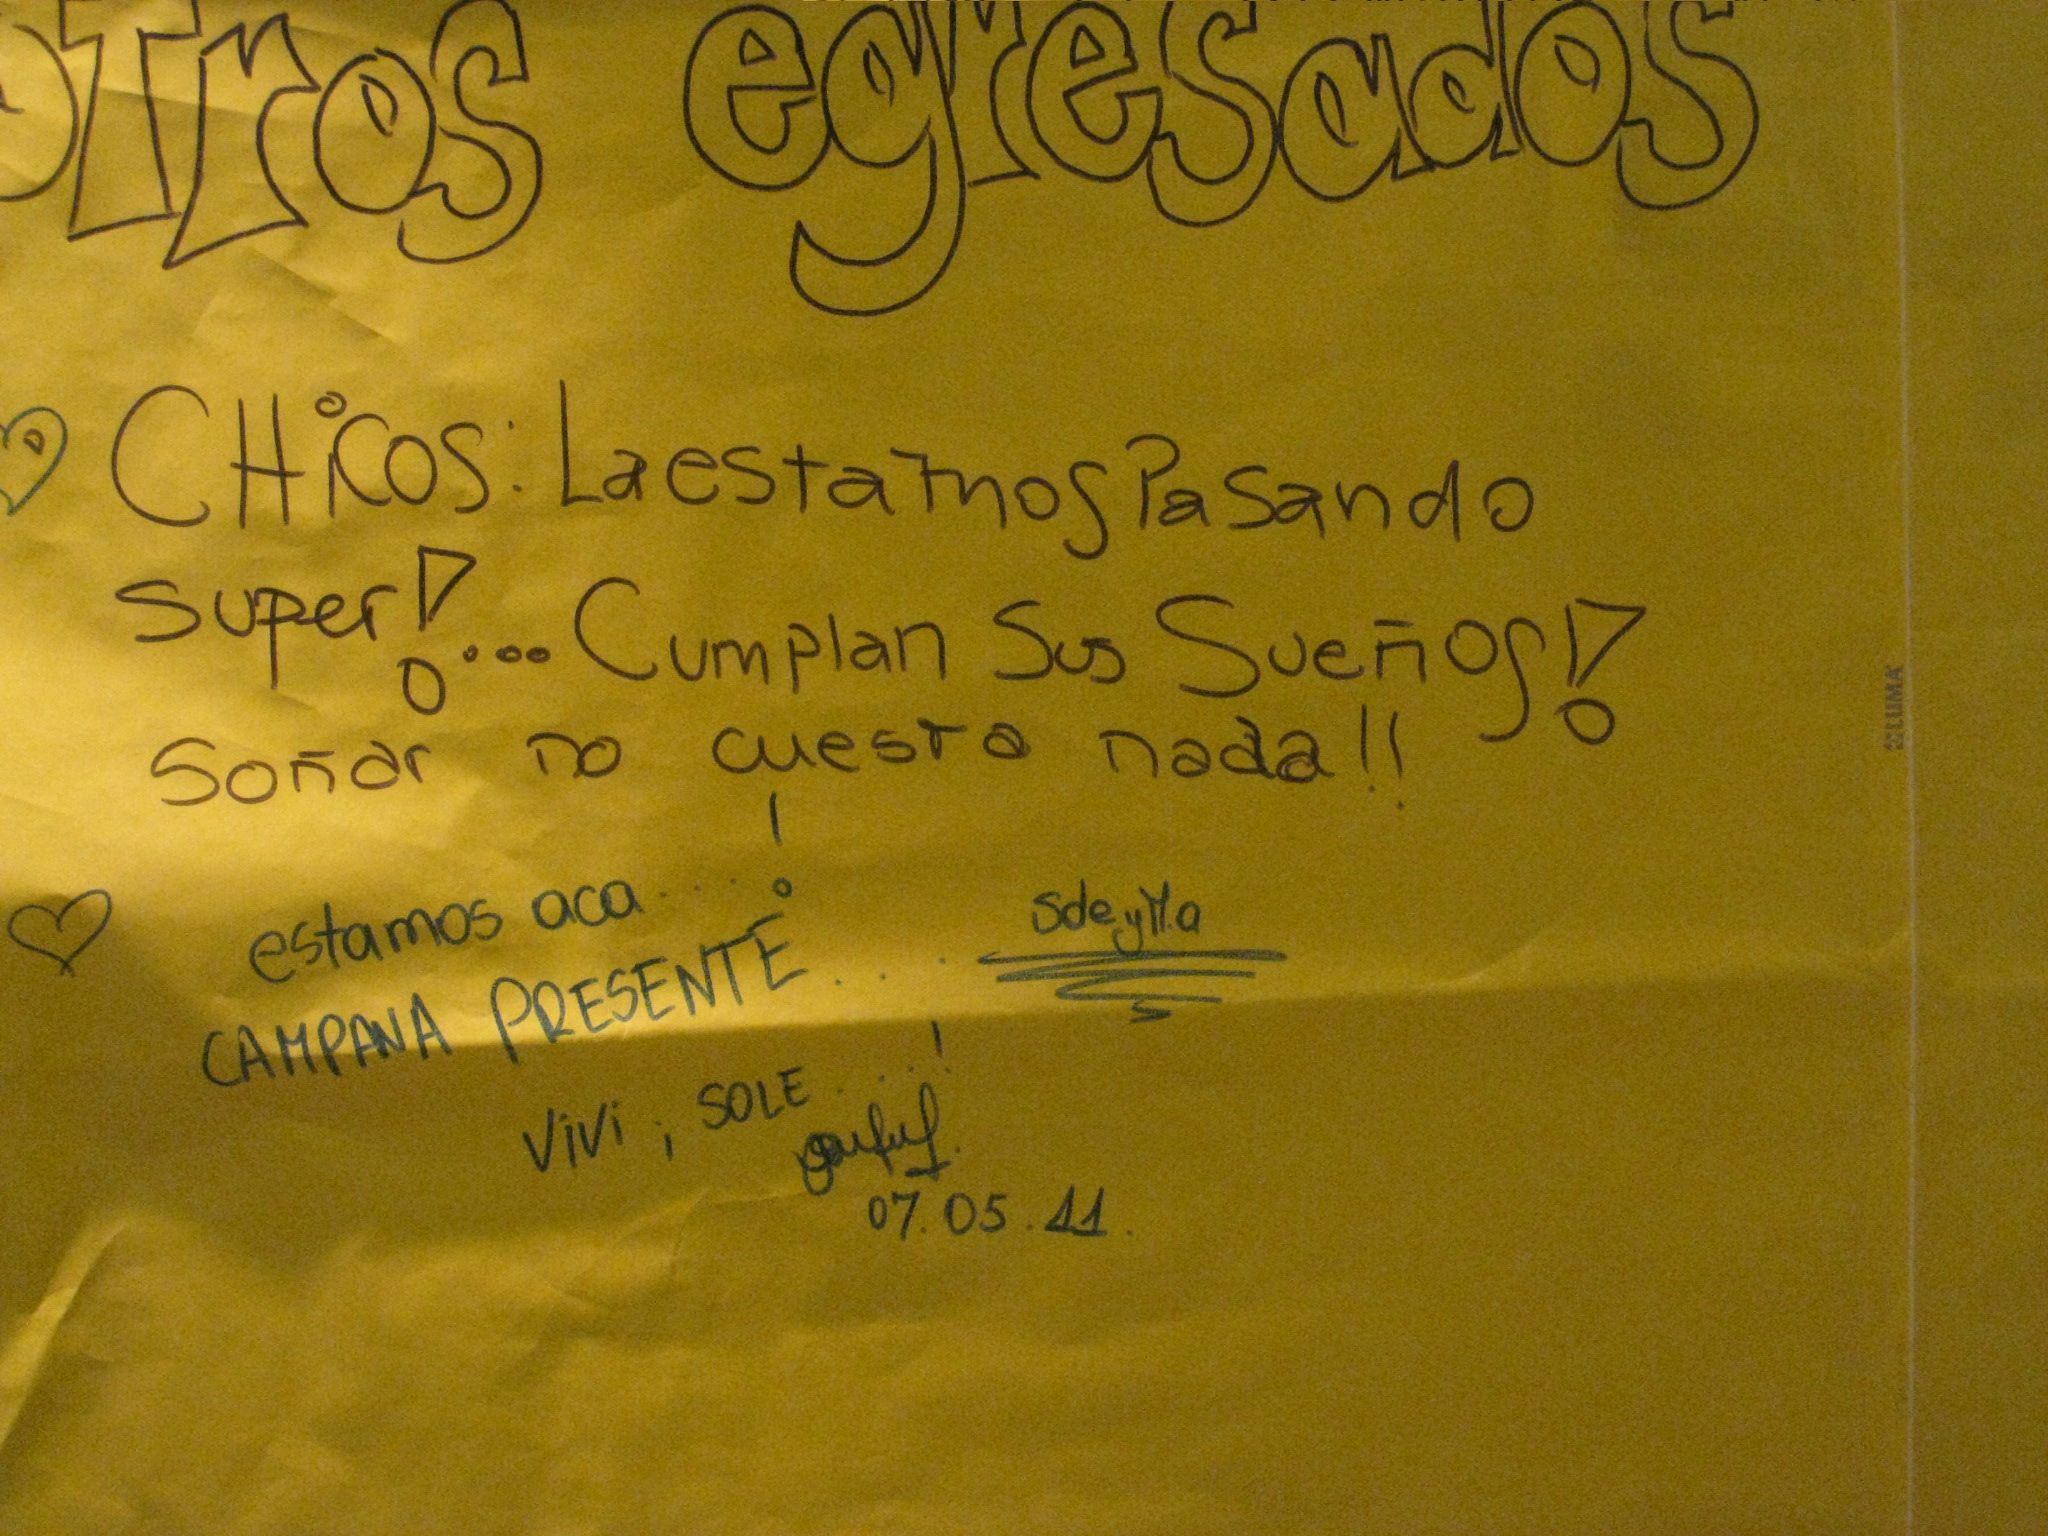 otros egresados
CHicos: La estamos Pasando
super! ... Cumplan Sus Sueños!
Soñar no cuesta nada!!
estamos aca ....!
CAMPANA PRESENTE ...
SdeyM.a
ViVi, SOLE ....!
07.05.11.
LUMA